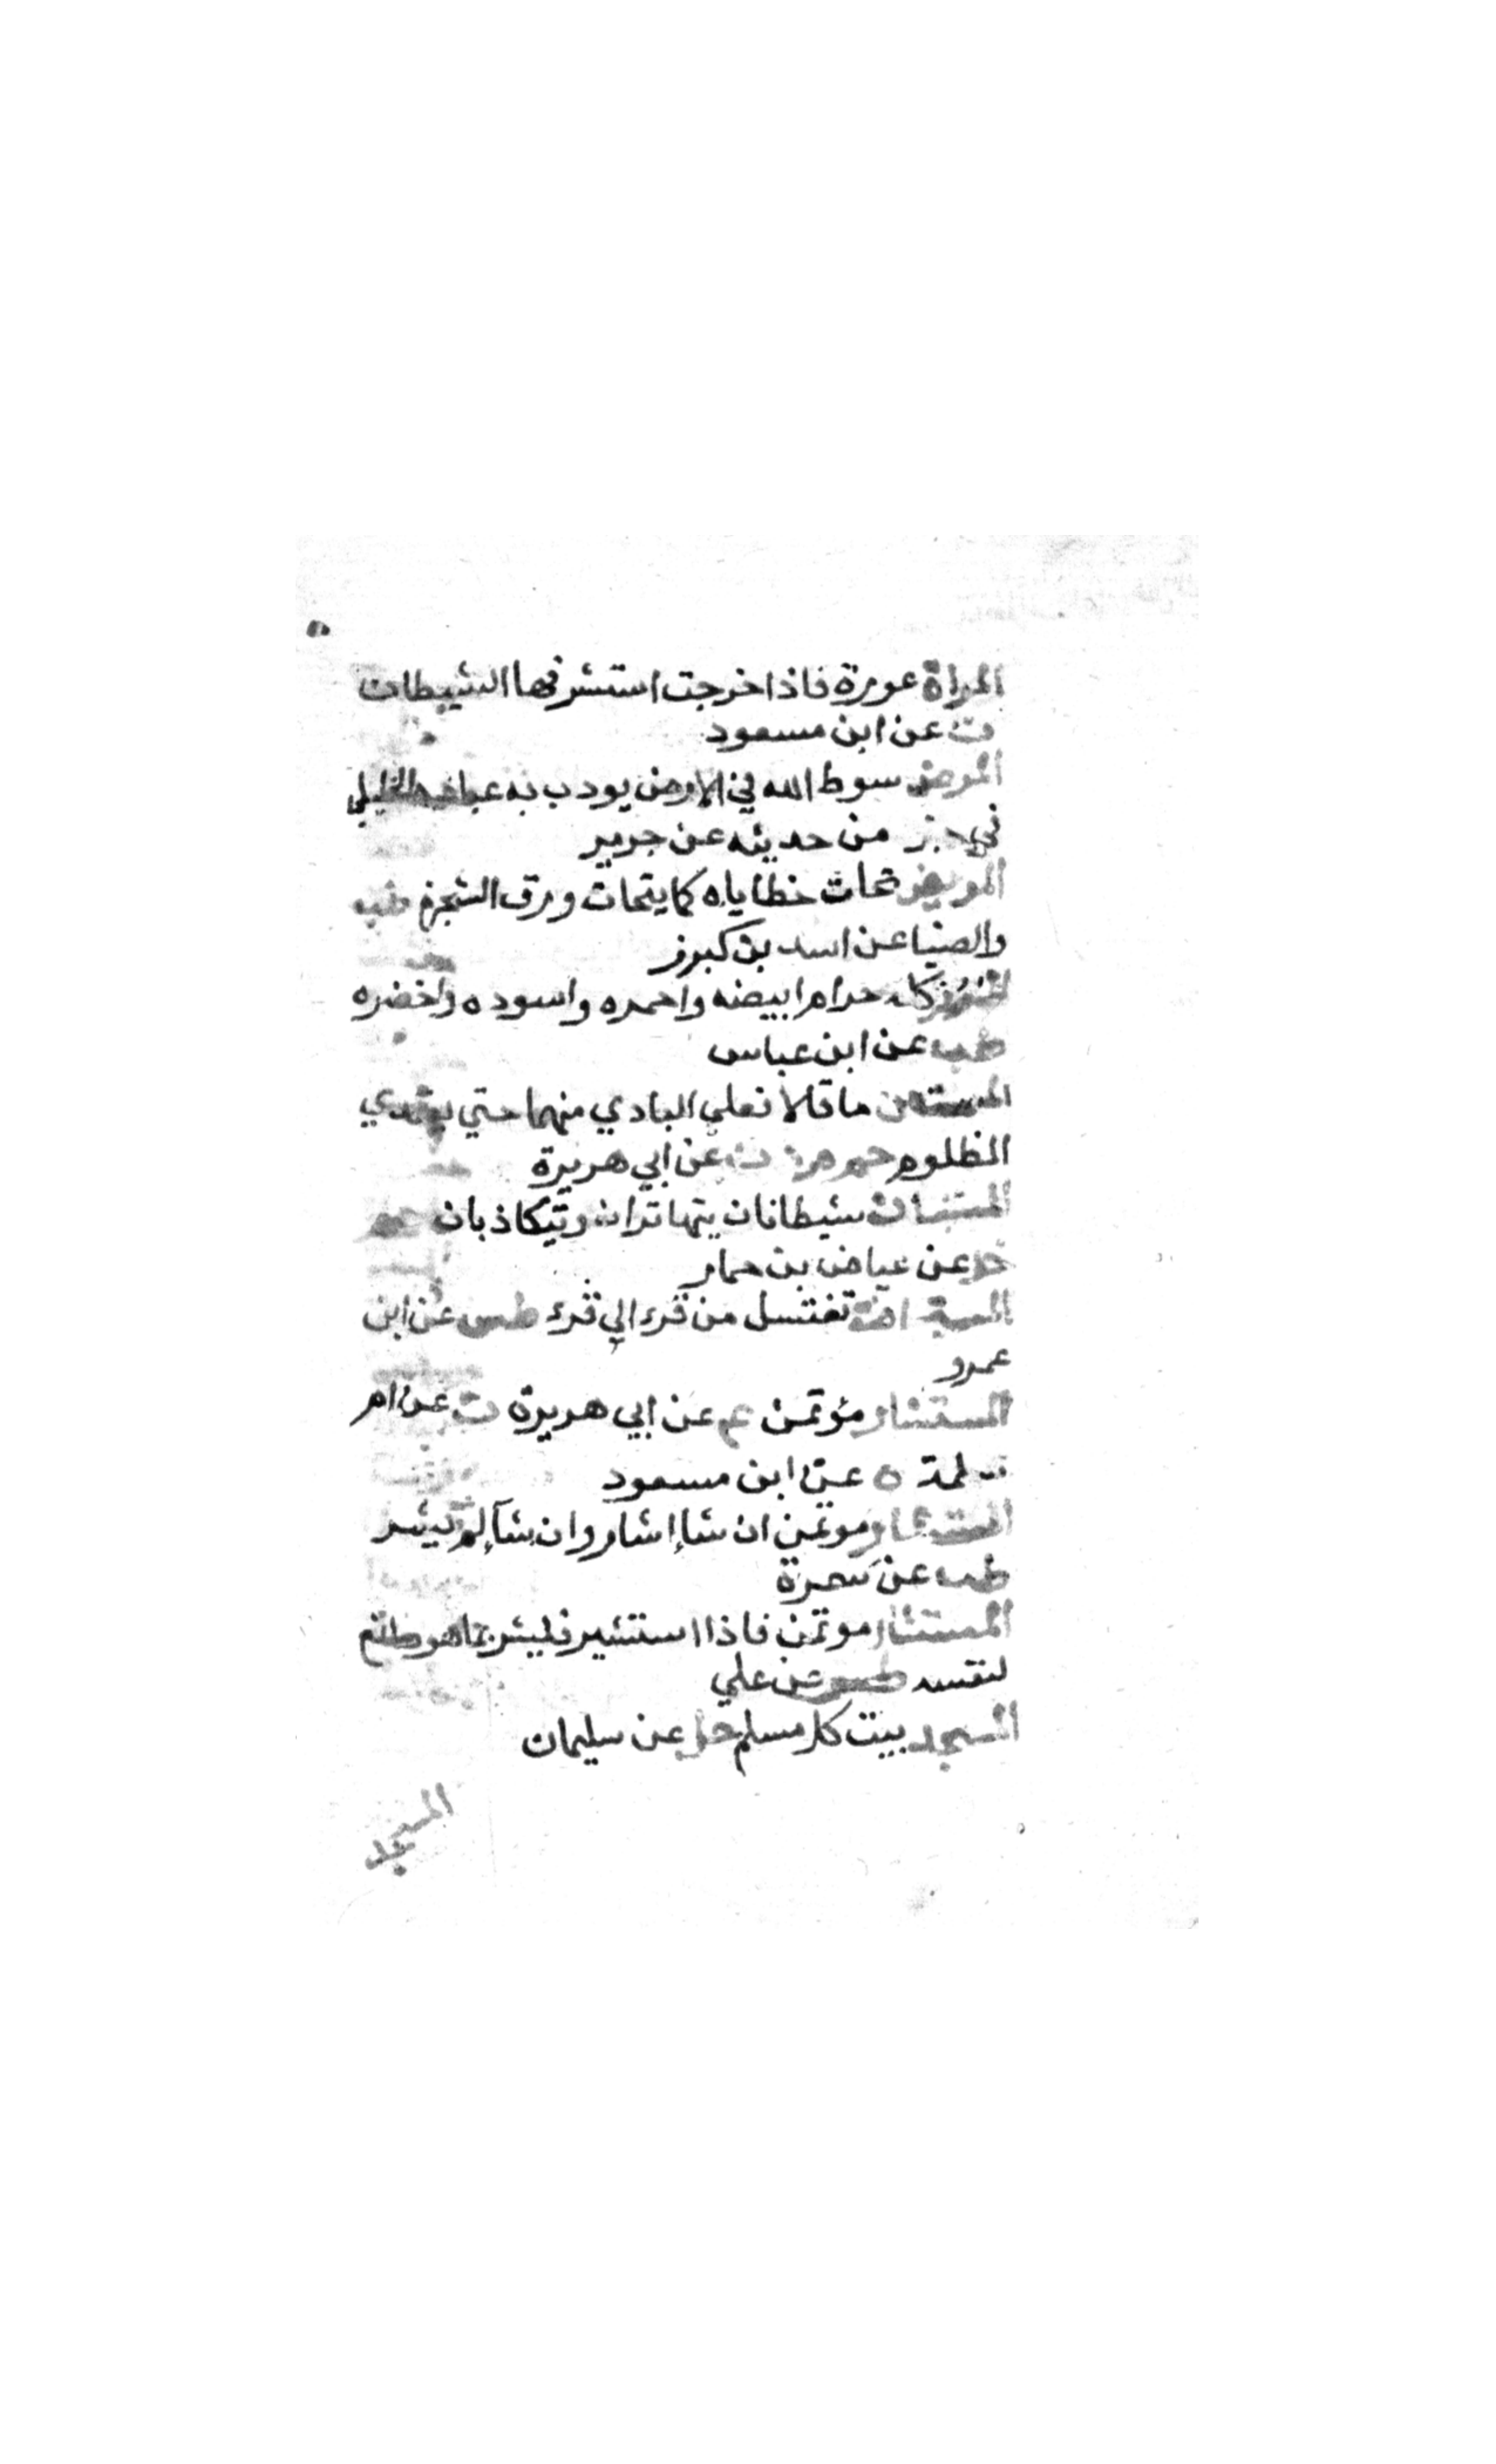 المراة عورة فاذا خرجت استشرفها الشيطان
ت عن ابن مسعود
المرض سوط الله في الارض يودب به عباده الخليلي
في جز من حديثه عن جرير
المريض تحات خطاياه كما يتحات ورق الشجر طب
والضيا عن اسد بن كرز
المزر كله حرام ابيضه واحمره واسوده واخضره
طب عن ابن عباس
المستبان ما قالا فعلي البادي منهما حتي يعتدي
المظلوم حم م د ت عن ابي هريرة
المستبان شيطانان يتهاتران ويتكاذبان حم
خد عن عياض بن حمار
المستحاضة تغتسل من قرء الي قرء طس عن ابن
عمرو
المستشار مؤتمن عم عن ابي هريرة ت عن ام
سلمة ه عن ابن مسعود
المستشار موتمن ان شا اشار وان شا لم يشر
طب عن سمرة
المستشار موتمن فاذا استشير فليشر بما هو صانع
لنفسه طس عن علي
المسجد بيت كل مسلم حل عن سليمان
المسجد